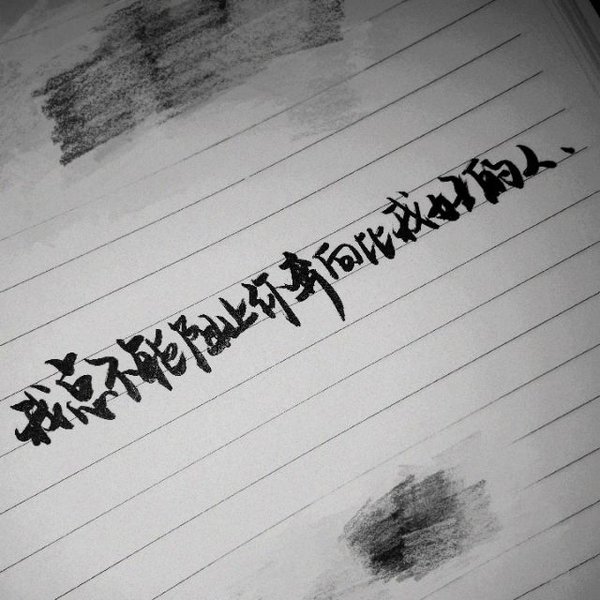 我总不能阻止你奔向比我好的人、